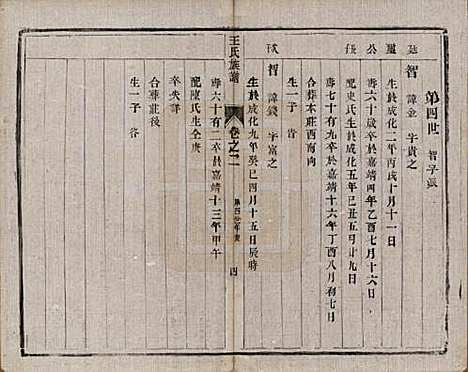 第四世 智子派
智 諱金 字貴之
生於成化二年丙戌十月十一日
壽六十歲卒於嘉靖四年乙酉七月十六日
配史氏生於成化五年己丑 月廿九日
壽七十有九卒於嘉靖十六年丁酉八月初七日
合葬本莊西南向
生一子
智 諱錢 字富之
生於成化九年癸巳四月十五日辰時
王氏族譜
卷之二
四
壽六十有二卒於嘉靖十三年甲午
配陳氏生全庚
卒失詳
合葬莊後
生一子